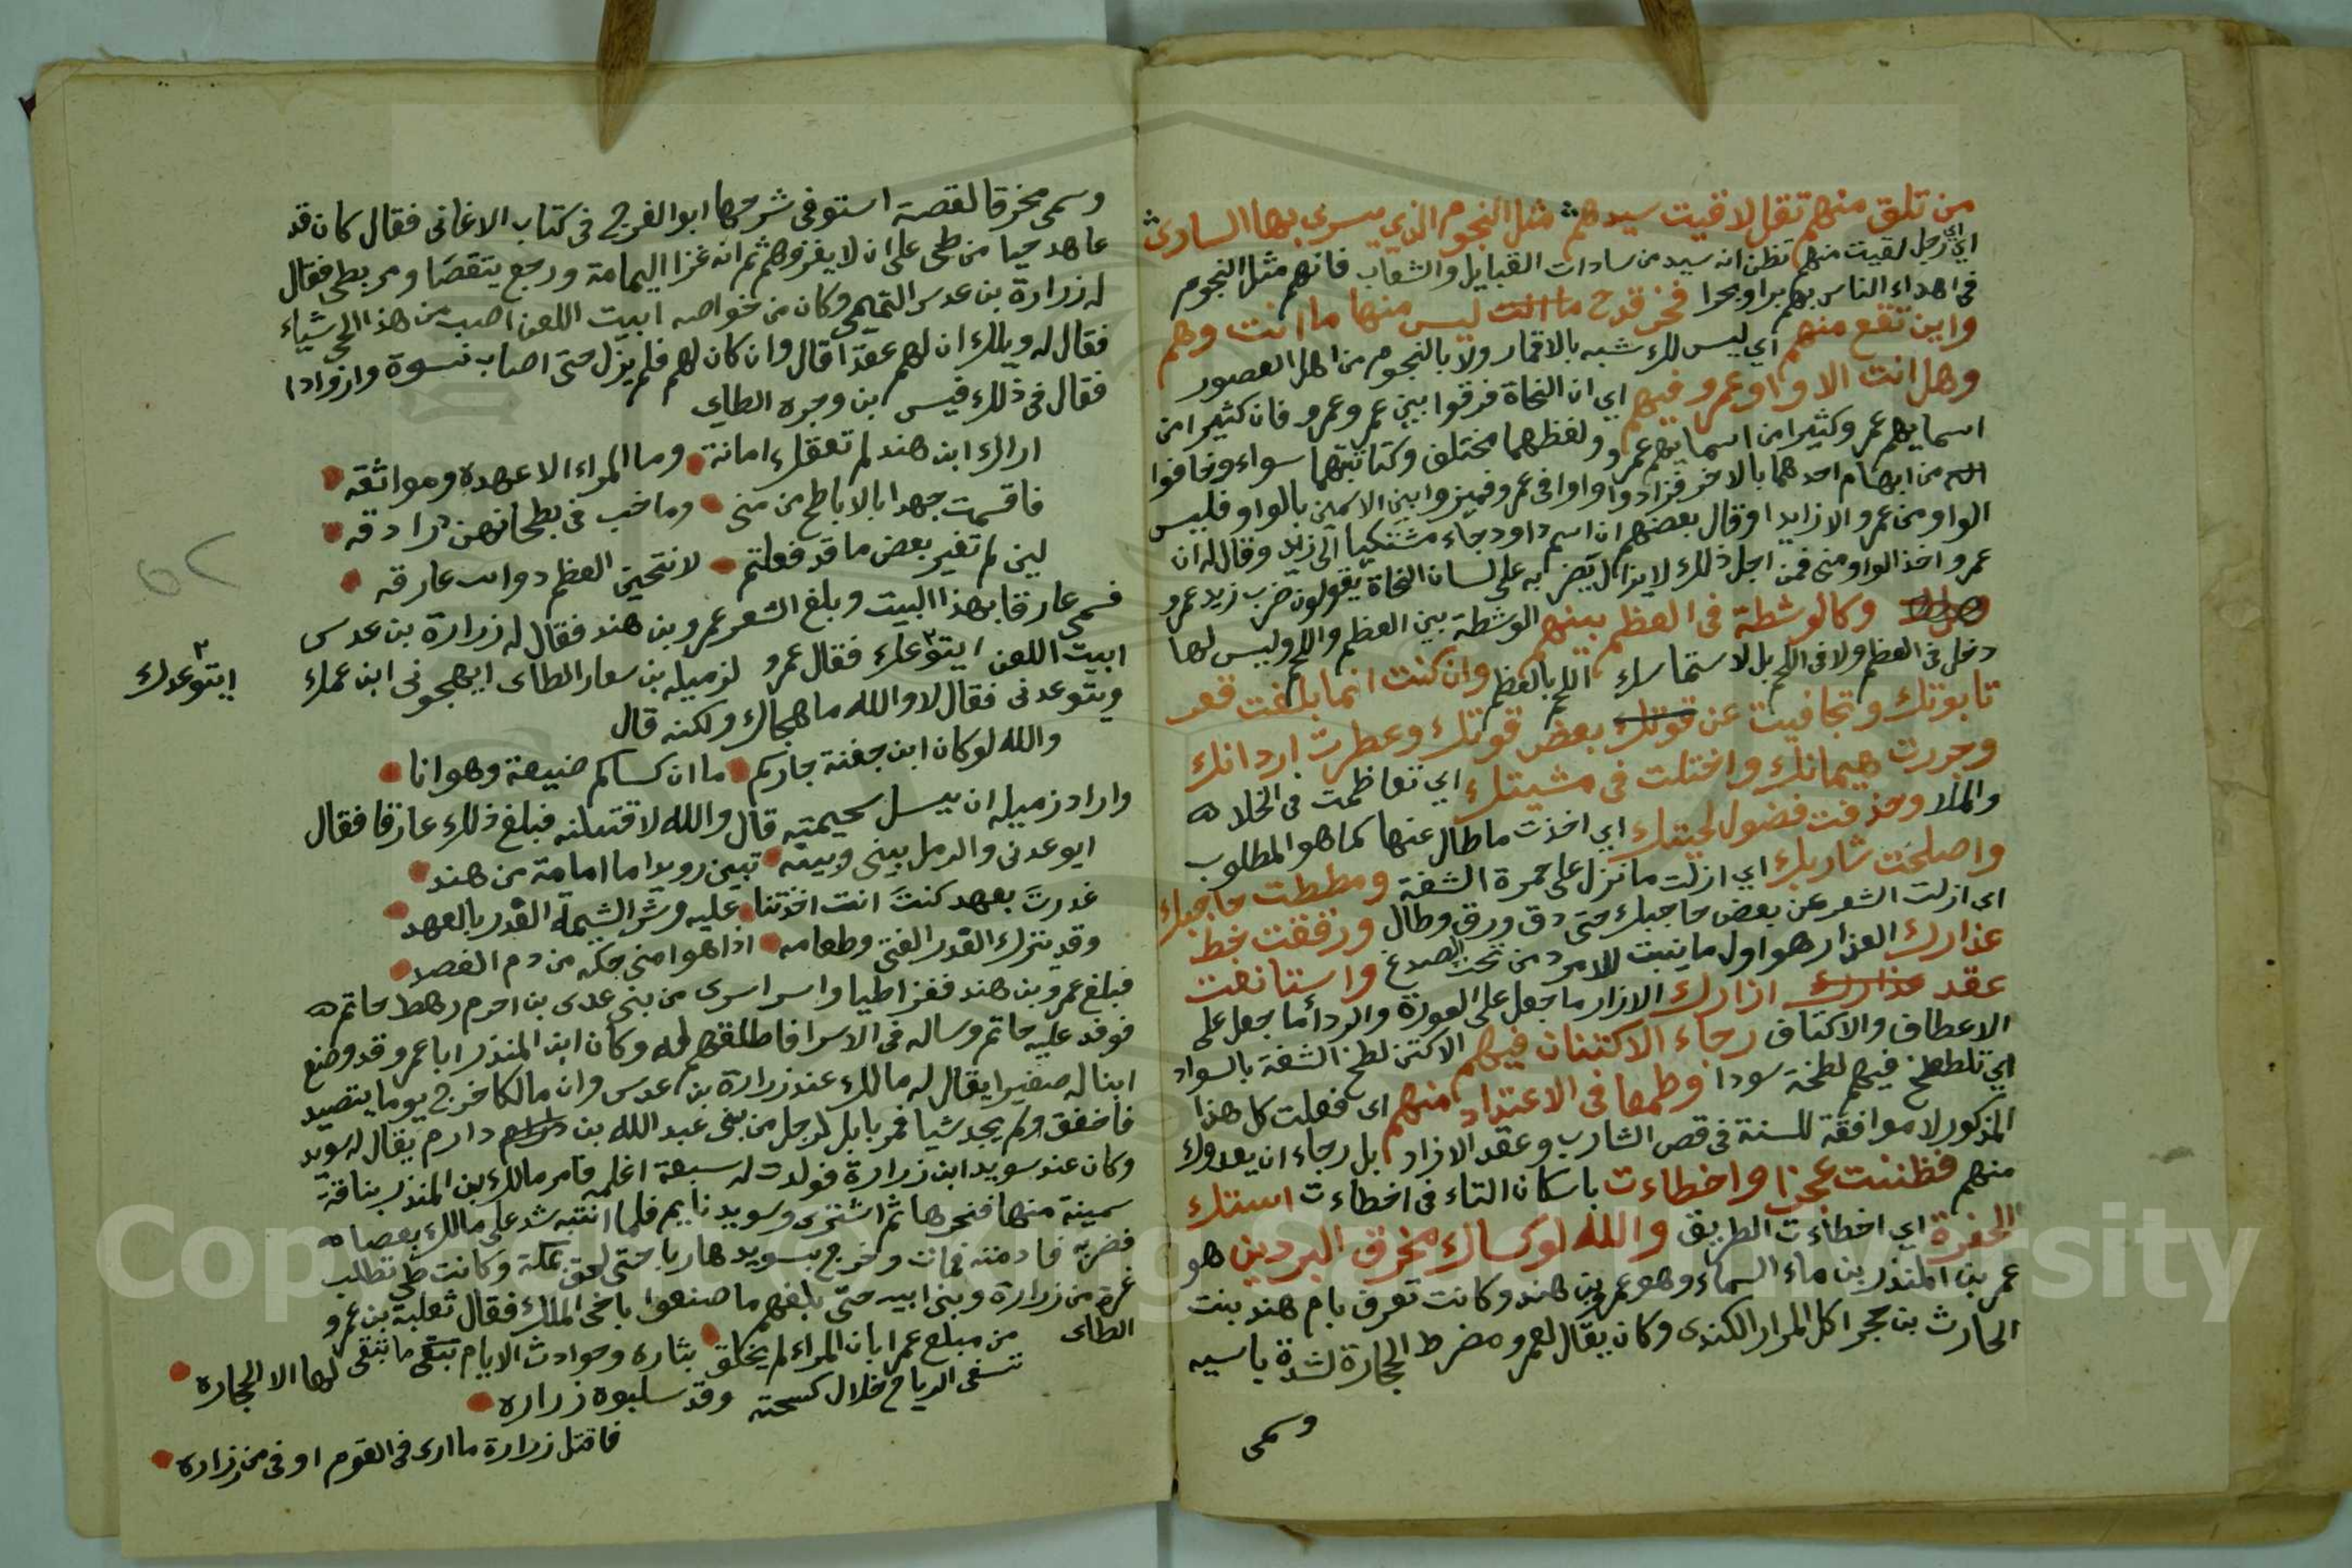 من تلق منهم تقل لاقيت سيدهم مثل النجوم الذي يسرى بها السارى
اي رجل لقيت منهم تظن انه سيد من سادات القبايل والشعاب فانهم مثل النجوم
فى اهداء الناس بهم برا وبحرا فخر قدح ما انت ليس منها ما انت وهم
واين تقع منهم اي ليس لك شبه بالاقمار ولا بالنجوم من اهل العصور
وهل انت الا واو عمرو فيهم اي ان النحاة فرقوا بين عمر وعمرو فان كثيرا من
اسمايهم عمر وكثيرا من اسمايهم عمرو ولفظهما مختلف وكتابتهما سواء وخافوا
من ابهام احدهما بالاخر فزادوا واوا فى عمرو فميزوا بين الاسمين بالواو فليس
الواو من عمرو الا زايدا وقال بعضهم ان اسم داود جاء مشتكيا الى زيد وقال له ان
عمرو اخذ الواو منى فمن اجل ذلك لا يزال يضر به على لسان النحاة يقولون ضرب زيد عمرو
وكالوشظة فى العظم بينهم الوشظة بين العظم واللحم وليس لها
دخل فى العظم ولا فى اللحم بل لاستماسك اللحم بالعظم وان كنت انما بلغت قعر
تابوتك وتجافيت عن قوتك بعض قوتك وعطرت اردانك
وجررت هيمانك واختلت فى مشيتك اي تعاظمت فى الخلا
والملا وحذفت فضول لحيتك اي اخذت ما طال عنها كما هو المطلوب
واصلحت شاربك اي ازلت ما نزل على حمرة الشفة ومططت حاجبك
اى ازلت الشعر عن بعض حاجبك حتى دق ورق وطال ورفقت خط
عذارك العذار هو اول ما ينبت للامرد من تحت الصدغ واستانفت
عقد عذارك ازارك الازار ما جعل على العورة والرداما جعل على
الاعطاف والاكتاف رجاء الاكتنان فيهم الاكتن لطخ الشفة بالسواد
اي تلطخ فيهم لطخة سودا وطمعا فى الاعتداد منهم اى فعلت كل هذا
المذكور لا موافقة للسنة فى قص الشارب وعقد الازار بل رجاء ان يعدوك
منهم فظننت عجزا واخطاءت باسكان التاء فى اخطاءت استك
الحفرة اي اخطاءت الطريق والله لو كساك مخرق البردين هو
عمر بن المنذر بن ماء السماء وهو عمرو بن هند وكانت تعرف بام هند بنت
الحارث بن حجر اكل المرار الكندى وكان يقال لعمرو مضرط الحجارة لشدة باسيه
وسمى
وسمى مخرقا لقصة استوفى شرحها ابو الفرج فى كتاب الاغانى فقال كان قد
عاهد حيا من طى على ان لا يغزوهم ثم انه غزا اليمامة ورجع يتقصا ومر بطى فقال
له زرارة بن عدس التميمى وكان من خواصه ابيت اللعن اصب من هذا الحى شياء
فقال له ويلك ان لهم عقدا قال وان كان لهم فلم يزل حتى اصاب نسوة وازوادا
فقال فى ذلك قيس ابن وجره الطاى
اراك ابن هند لم تعقك امانة وما المراء الا عهده ومواثقه
فاقسمت جهدا بالاباطح من منى وما خب فى بطحانهن درادقه
لين لم تغير بعض ما قد فعلتم لانتحين العظم دوانت عارقه
فسمى عارقا بهذا البيت وبلغ الشعر عمرو بن هند فقال له زرارة بن عدس
ابيت اللعن ايتوعدك فقال عمرو لزميله بن سعار الطاى ايهجونى ابن عمك
ايتوعدك
ويتوعدنى فقال لا والله ما هجاك ولكنه قال
والله لو كان ابن جفنة جاركم ما ان كساكم ضيعة وهوانا
واراد زميله ان يسل سحيمته قال والله لاقتلنه فبلغ ذلك عارقا فقال
ايوعدنى والرمل بينى وبينه تبين رويدا ما امامة من هند
غدرت بعهد كنت انت اخذتنا عليه وشر الشيمة الغدر بالعهد
وقد يترك الغدر الفتى وطعامه اذا هو امنى جكه من دم الفصد
فبلغ عمرو بن هند فغزا طيا واسر اسرى من بنى عدى بن احزم رهط حاتم
فوفد عليه حاتم وساله فى الاسرا فاطلقهم له وكان ابن المنذر ابا عمرو قد وضع
ابنا له صغيرا يقال له مالك عند زرارة بن عدس وان مالكا خرج يوما يتصيد
فاخفق ولم يجد شيا فمر بابل لرجل من بنى عبد الله بن دارم يقال له سويد
وكان عند سويد ابن زرارة فولدت له سبعة اغلمه فامر مالك بن المنذر بناقة
سمينة منها فنحرها ثم اشتوى وسويد نايم فلما انتبه شد على مالك بعصا
فضربه فادمته فمات وخرج سويد هاربا حتى لحق بمكة وكانت طى تطلب
غرة من زرارة وبنى ابيه حتى بلغهم ما صنعوا باخى الملك فقال ثعلبة بن عمرو
الطاى من مبلغ عمرا بان المراء لم يخلق بثاره وحوادث الايام تبقى ما تبقى لها الا الحجاره
تسفى الرياح خلال كسحته وقد سلبوة زراره
فاقتل زرارة ما ارى فى القوم اوفى من زراره